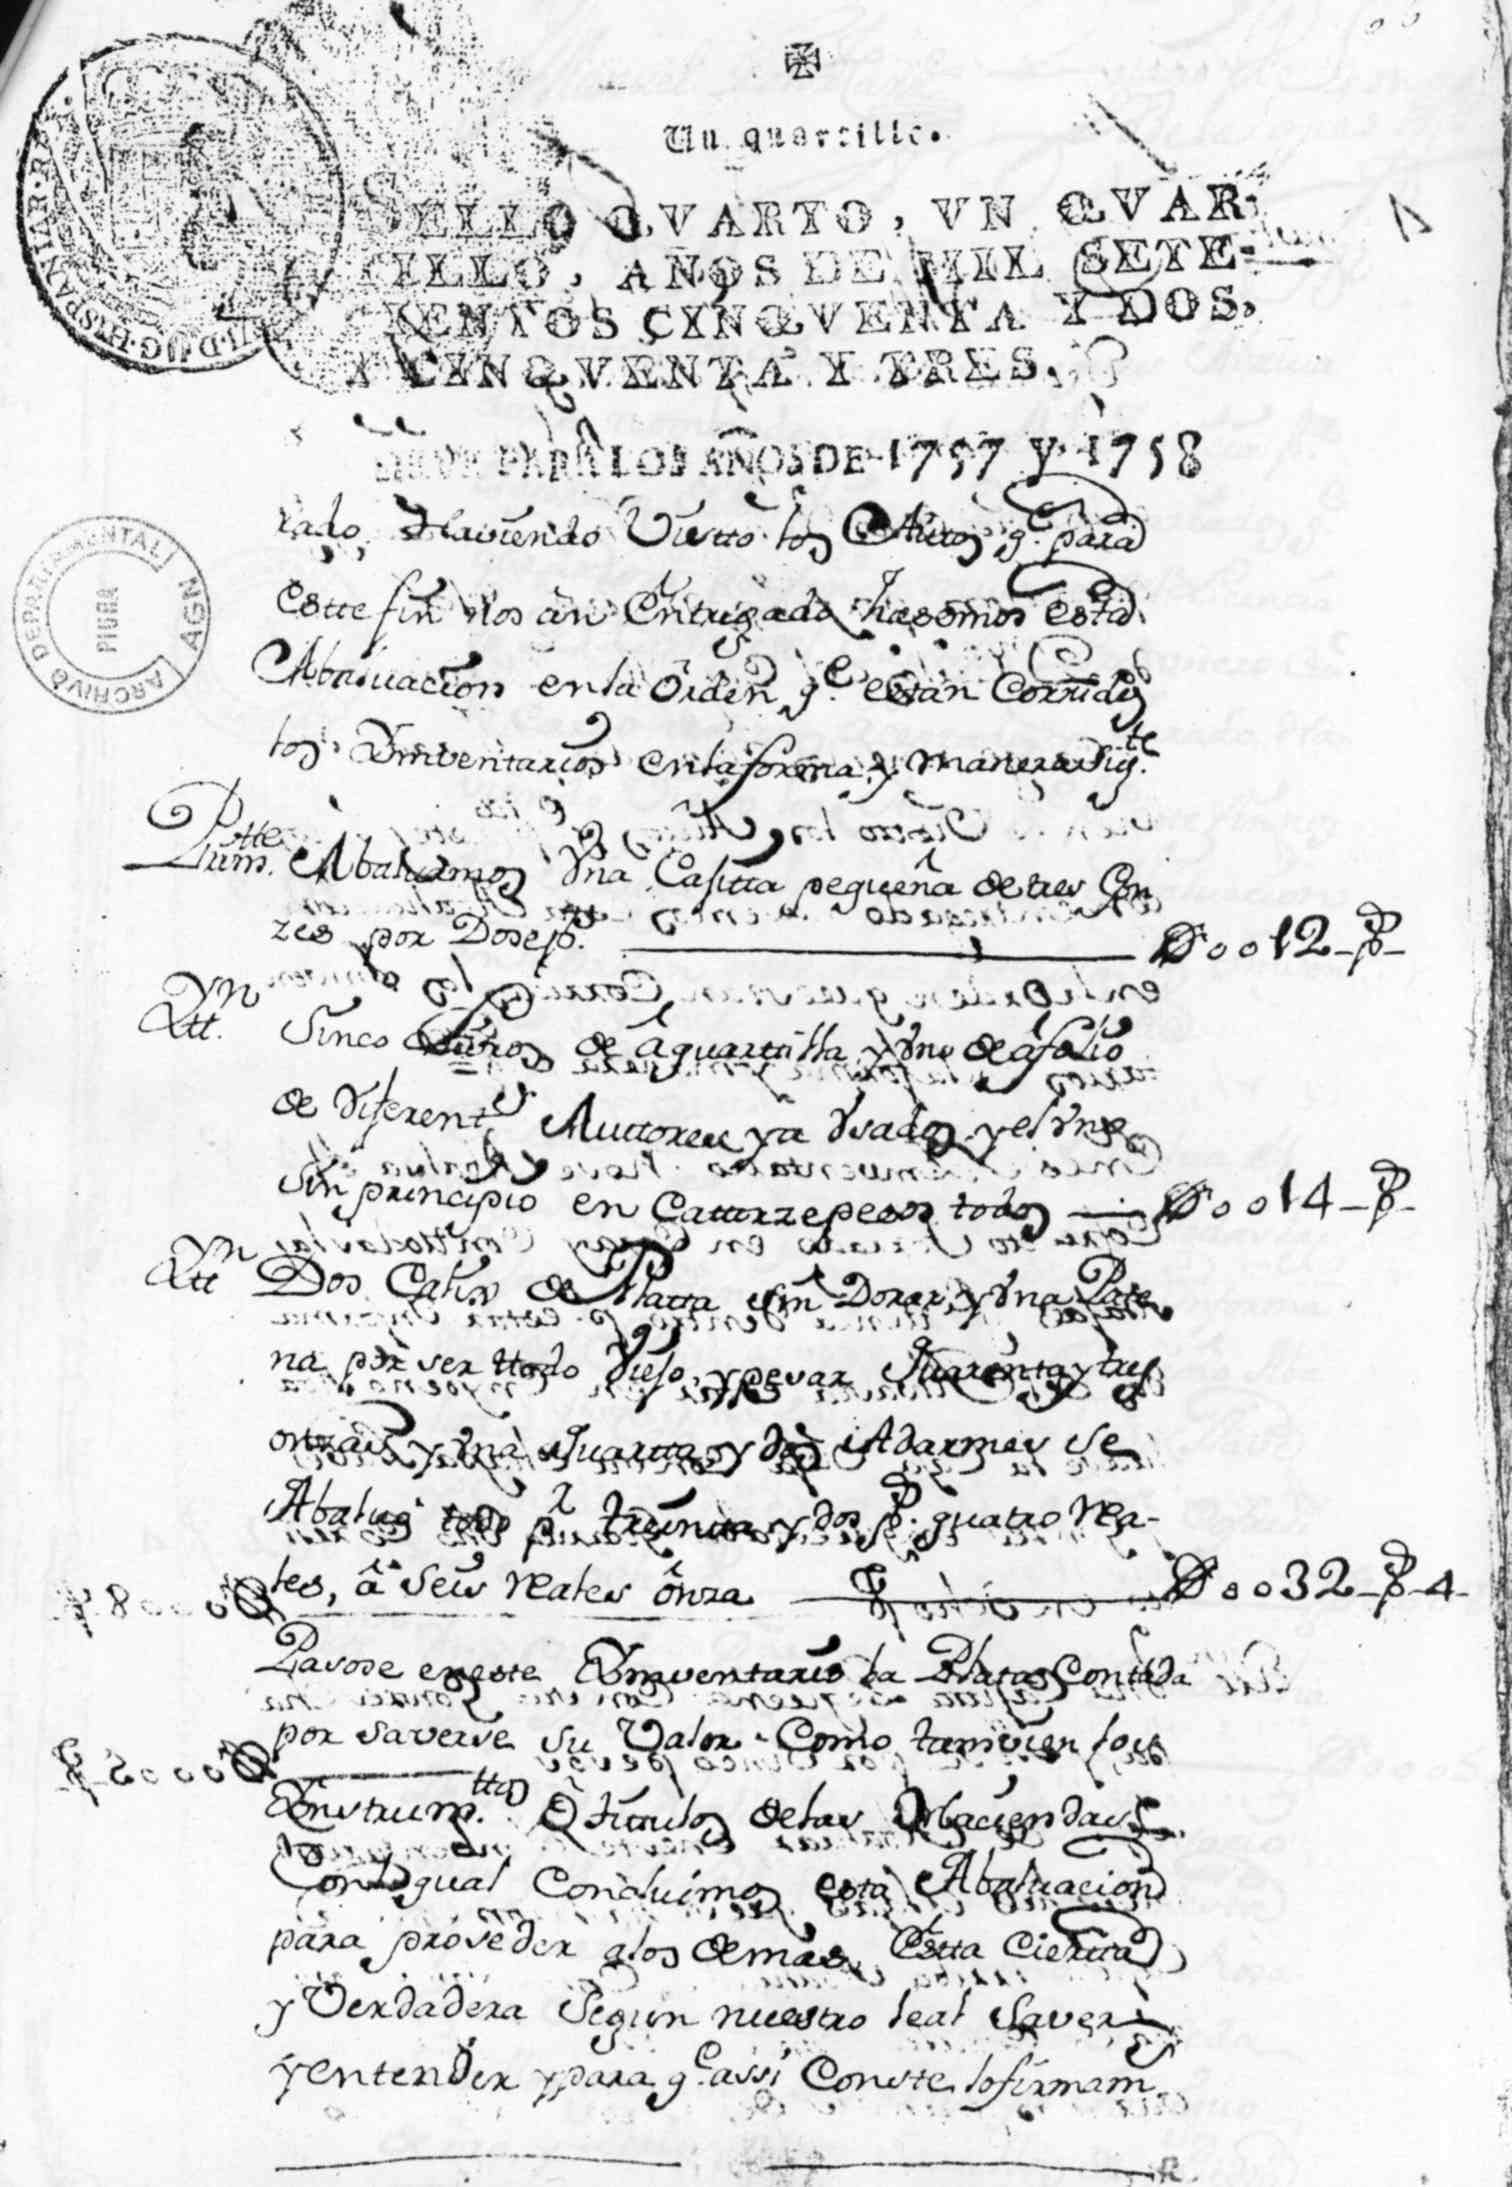 Un quartillo.
SELLO QVARTO, VN QVAR
TILLO, AÑOS DE MIL SETE-
CIENTOS CINQVENTA Y DOS,
Y CINQVENTA Y TRES.
PARA LOS AÑOS DE 1757 Y 1758
HISPANIAR·REX
ARCHIVO DEPARTAMENTAL
PIURA
AGN
rado, Haviendo Visto los Autos q.e para
este fin nos an Entregado hasemos esta
Abaluacion en la Orden q.e estan Corridos
los Ymbentarios en la forma y manera Sig.te
Prim.tte Abaluamos Vna Casitta pequeña de tres Gon
zes por Dose p.s D 0 0 12 - p -
Yttn Sinco Libros de â quartilla y Vno de â folio
de diferent.s Auttores ya Vsados y el Vno
sin principio en Cattorze pesos todos D 0 0 14 - p -
Yttn Dos Calix de Platta sin Dorar, y Vna Pate
na por ser ttodo Viejo, y pesar Quarenta y tres
onzas y Vna Quartta y dos Adarmes se
Abaluó todo p.r treinta y dos p.s quatro Rea-
les, â Seis Reales ônza D 0 0 32 - p - 4 -
Pasose en este Ymventario la Plata Contada
por saverse su Valor. Como tamvien los
Ynstrum.ttos ô titulos de las Haciendas
Con lo qual Concluimos esta Abaluacion
para proveder a los demas. Estta Ciertta
y Verdadera Segun nuestro leal Saver
y entender y para q.e assi Conste lo firmam.